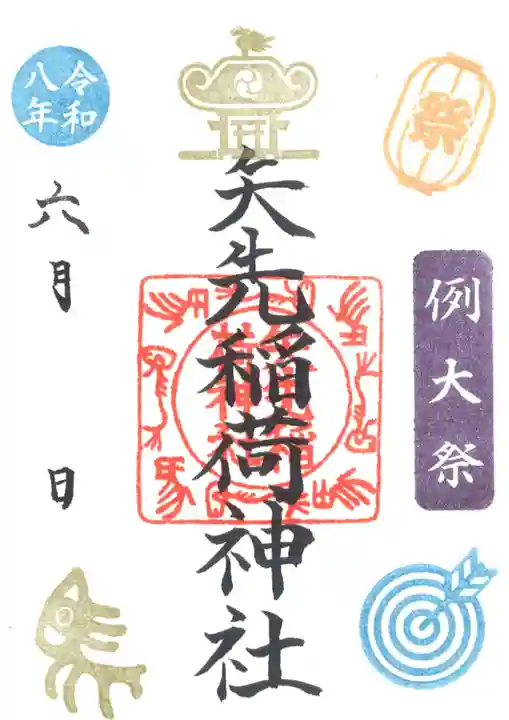 令和
八年
祭
例大祭
矢先稲荷神社
六月
日